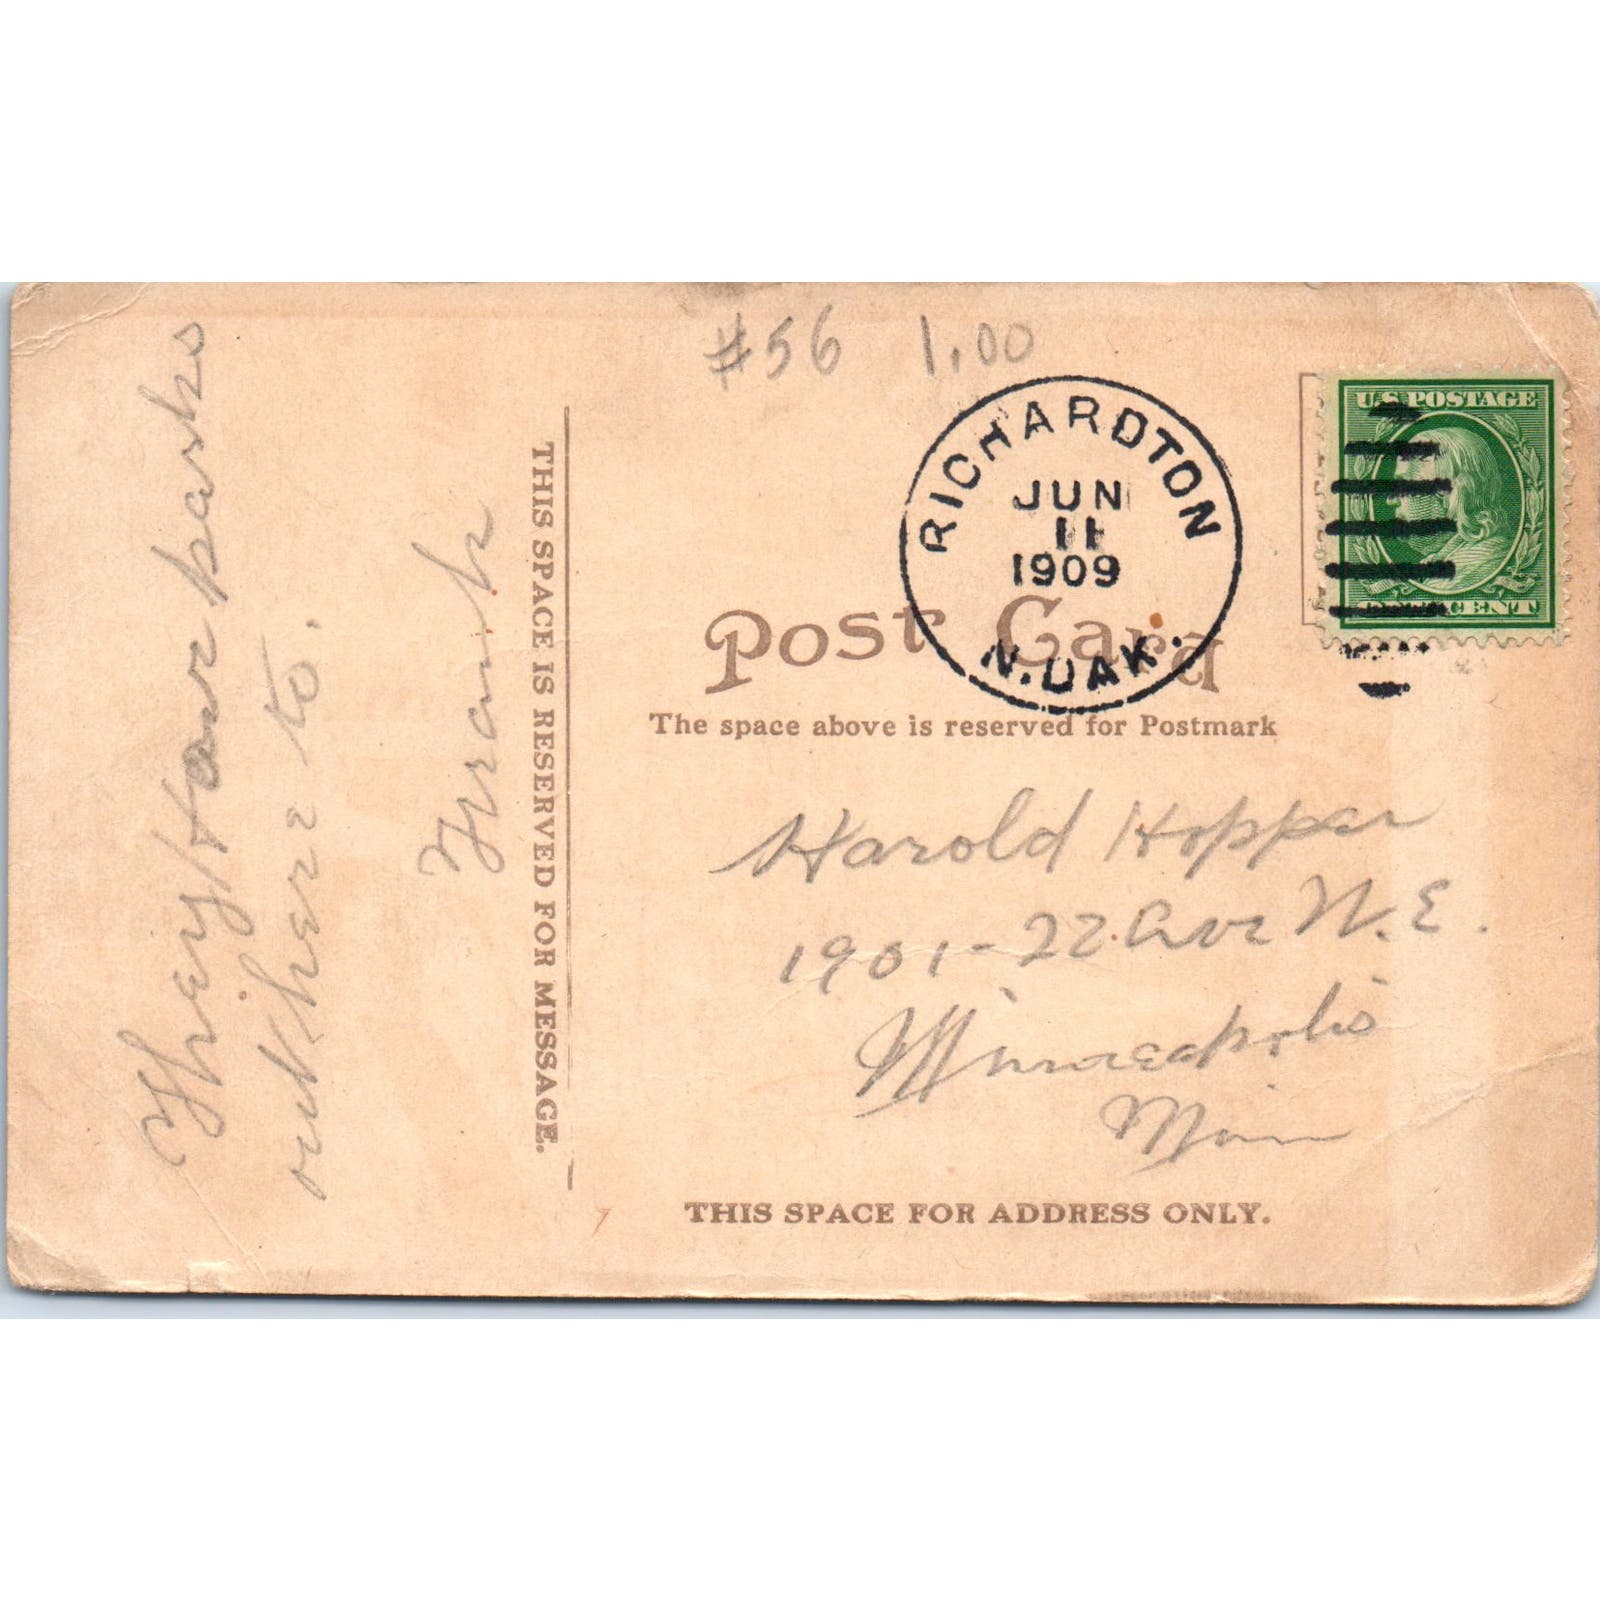 #56 1.00
RICHARDTON
JUN
11
1909
N.DAK.
U.S. POSTAGE
CENT
Post Card
The space above is reserved for Postmark
They Have parks
out here to.
Frank
THIS SPACE IS RESERVED FOR MESSAGE.
Harold Hopper
1901-22 Ave N.E.
Minneapolis
Minn
THIS SPACE FOR ADDRESS ONLY.